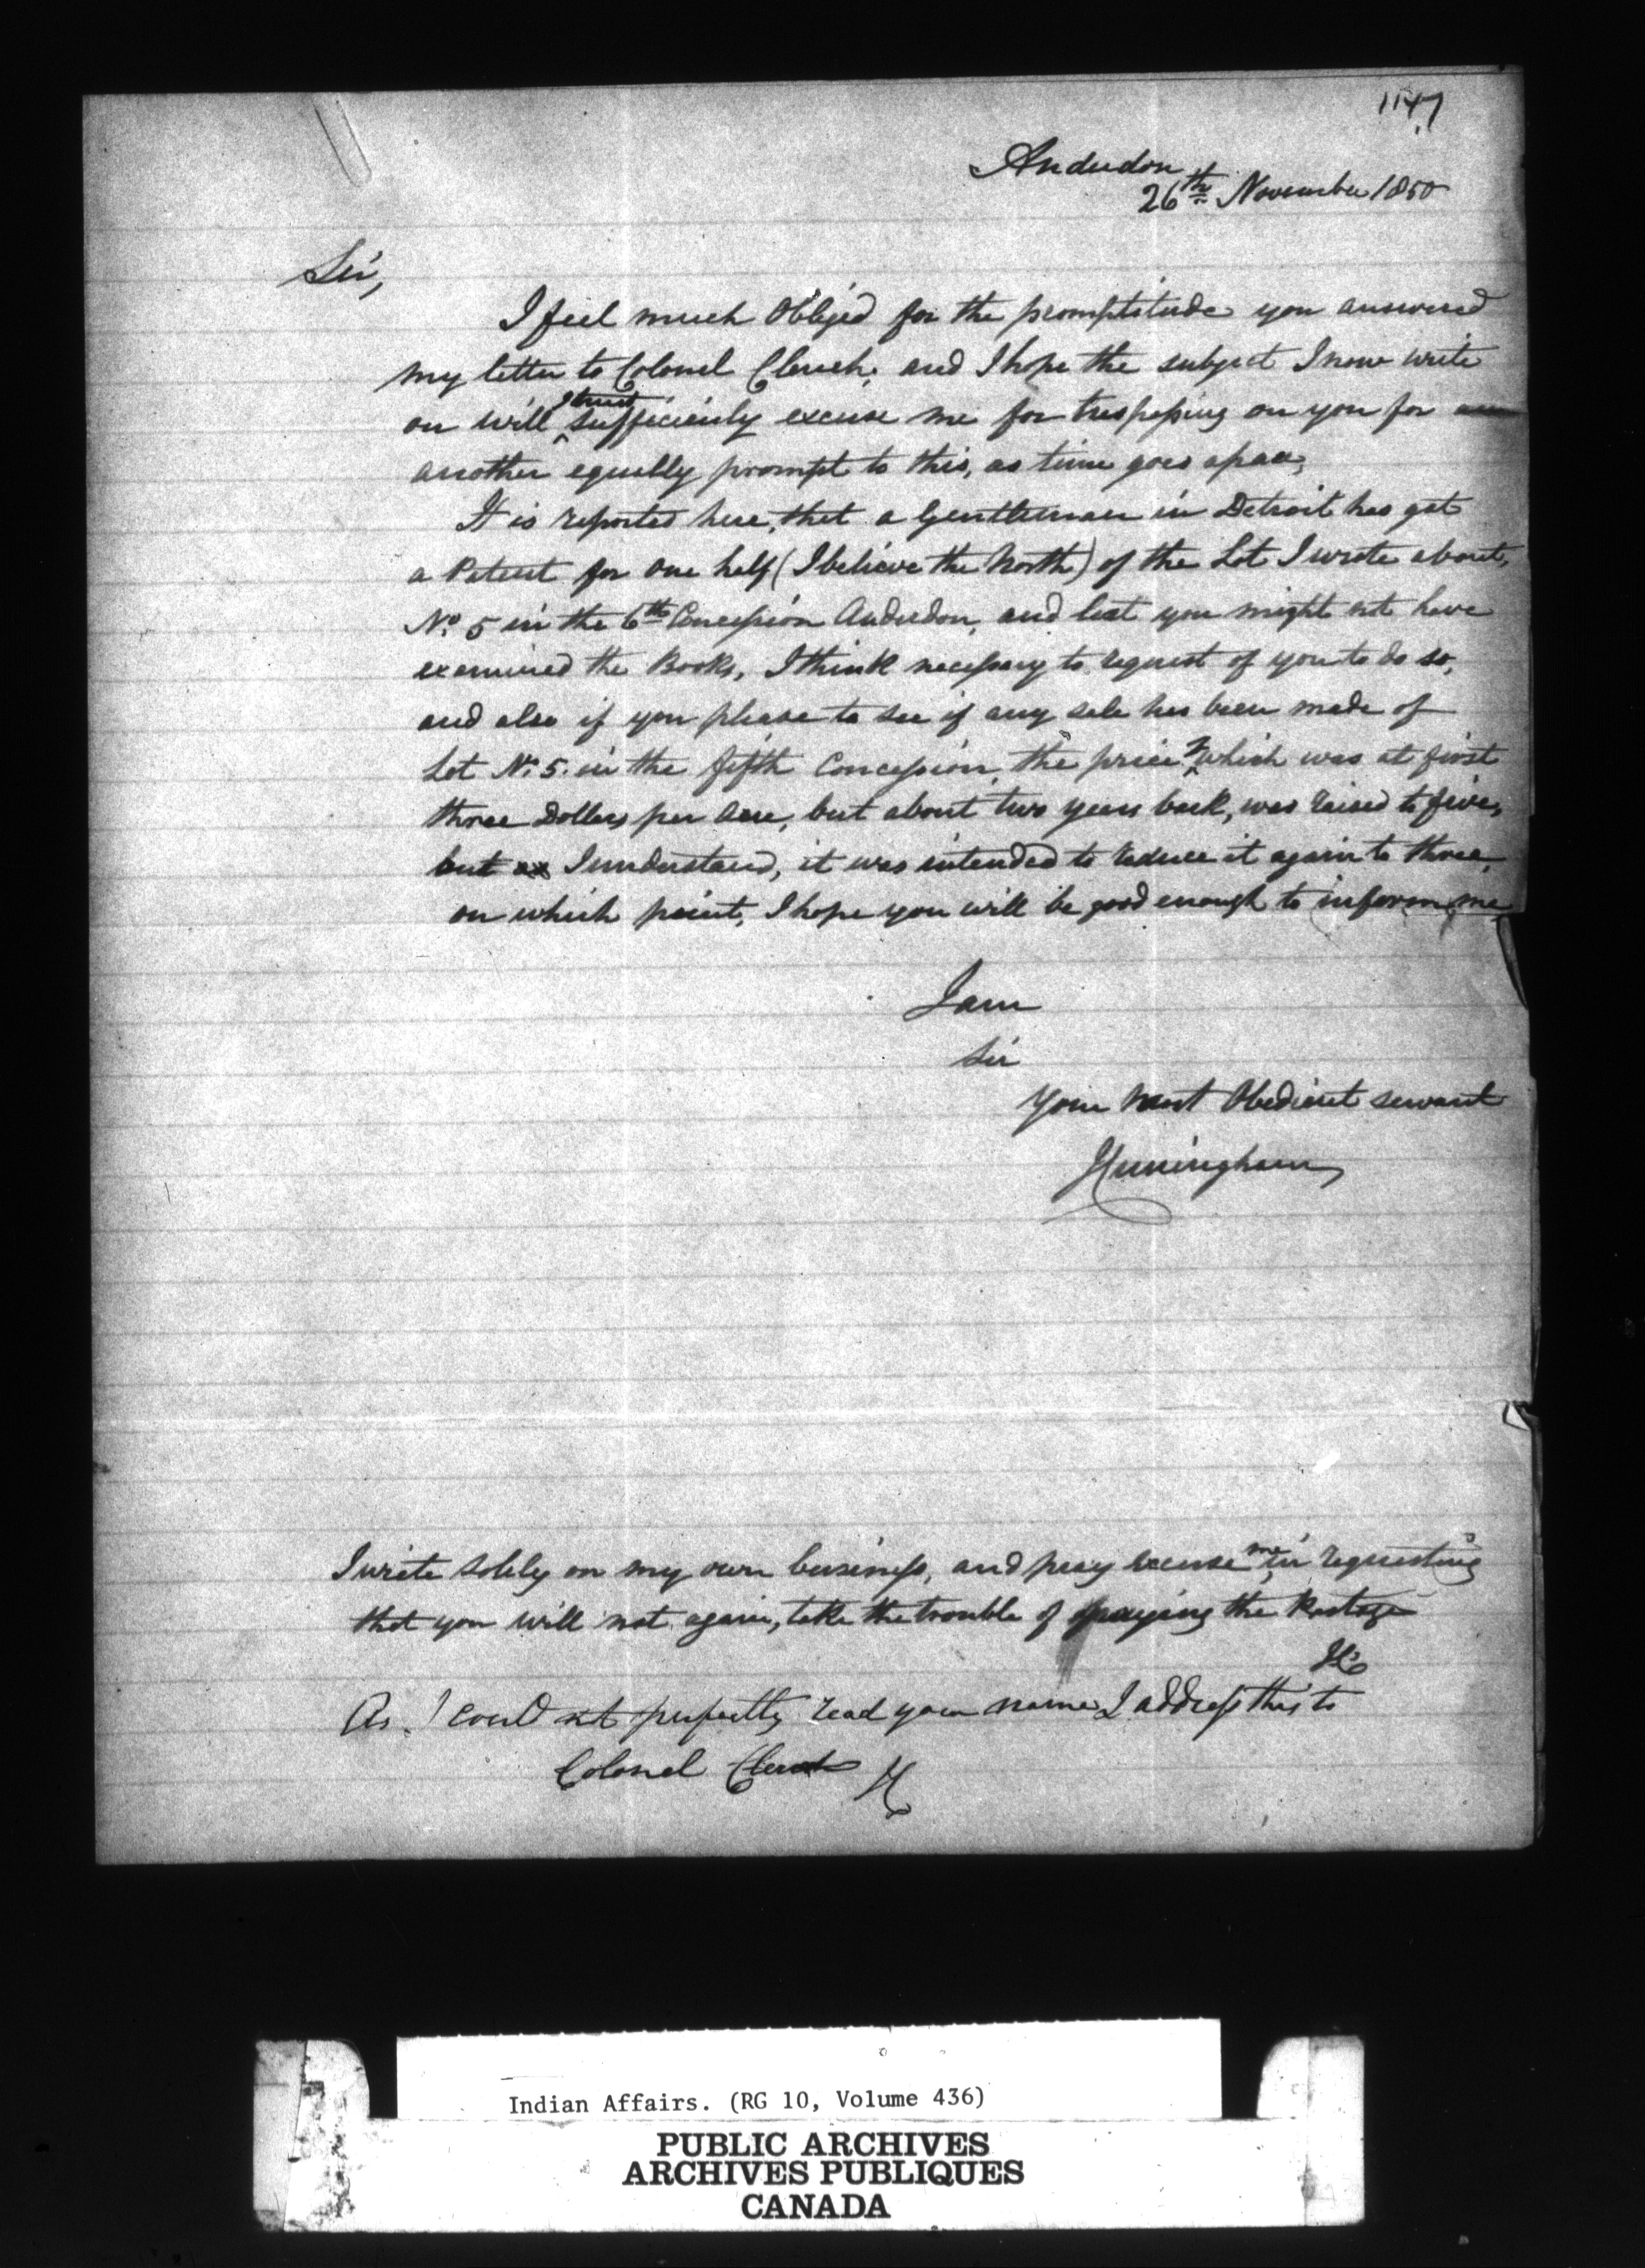 1147
Anderdon
26th November 1850
Sir,
I feel much Obliged for the promptitude you answered
my letter to Colonel Clench, and I hope the subject I now write
on will I trust sufficiently excuse me for trespassing on you for
another equally prompt to this, as time goes apace,
It is reported here, that a Gentleman in Detroit has got
a Patent for one half (I believe the North) of the Lot I wrote about,
No. 5 in the 6th Concession Anderdon, and lest you might not have
examined the Books, I think necessary to request of you to do so,
and also if you please to see if any sale has been made of
Lot No. 5. in the fifth Concession, the price of which was at first
three Dollars per Acre, but about two years back, was raised to five,
but as I understand, it was intended to reduce it again to three,
on which point, I hope you will be good enough to inform me
I am
Sir
Your Most Obedient servant
I write solely on my own business, and pray excuse me, in requesting
that you will not again, take the trouble of paying the Postage
As I could not perfectly read your name, I address this to
Colonel Clench
Indian Affairs. (RG 10, Volume 436)
PUBLIC ARCHIVES
ARCHIVES PUBLIQUES
CANADA